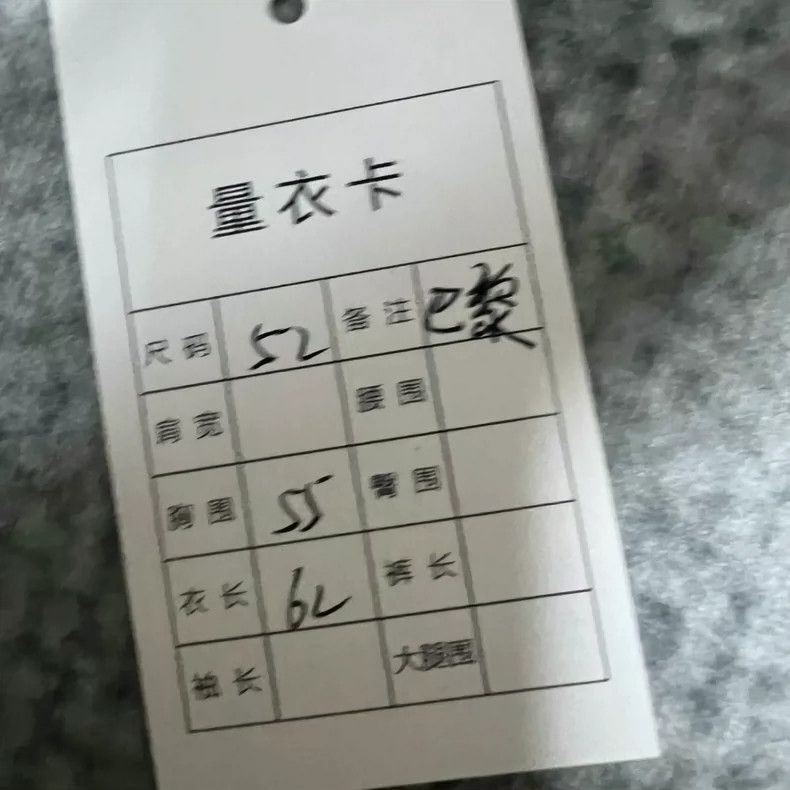 量衣卡
尺码 52 备注 巴黎
肩宽 腰围
胸围 55 臀围
衣长 62 裤长
袖长 大腿围